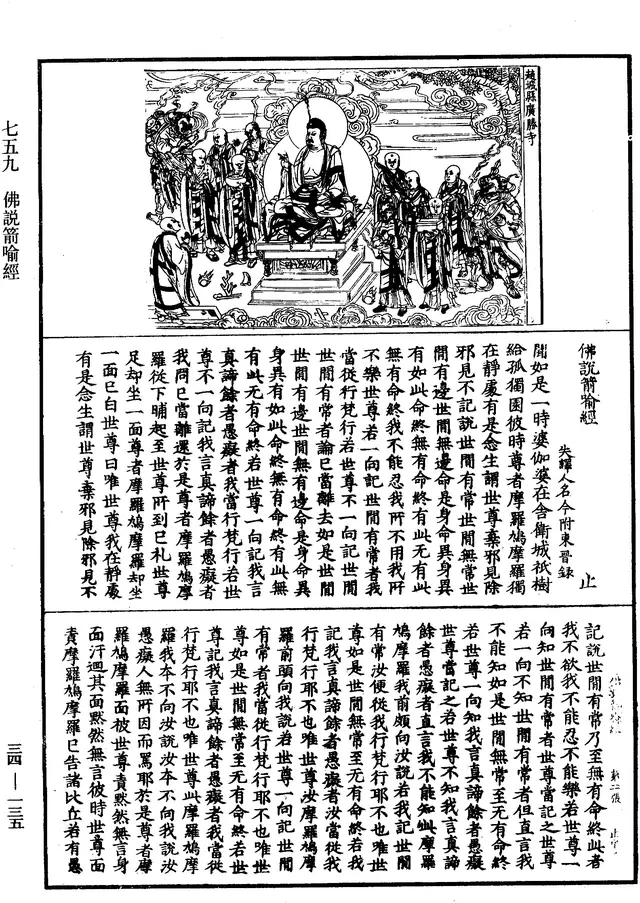 趙城縣廣勝寺
佛說箭喻經
失譯人名今附東晉錄
止
聞如是一時婆伽婆在舍衛城祇樹
給孤獨園彼時尊者摩羅鳩摩羅獨
在靜處有是念生謂世尊棄邪見除
邪見不記說世間有常世間無常世
間有邊世間無邊命是身命異身異
有如此命終無有命終有此無有此
無有命終我不能忍我所不用我所
不樂世尊若一向記世間有常者我
當從行梵行若世尊不一向記世間
世間有常者論已當離去如是世間
世間有邊世間無有邊命是身命異
身異有如此命終無有命終有此無
有此無有命終若世尊一向記我言
真諦餘者愚癡者我當行梵行若世
尊不一向記我言真諦餘者愚癡者
我問已當離還於是尊者摩羅鳩摩
羅從下晡起至世尊所到已禮世尊
足却坐一面尊者摩羅鳩摩羅却坐
一面已白世尊曰唯世尊我在靜處
有是念生謂世尊棄邪見除邪見不
第二張
止字
記說世間有常乃至無有命終此者
我不欲我不能忍不能樂若世尊一
向知世間有常者世尊當記之世尊
若一向不知世間有常者但直言我
不能知如是世間無常至無有命終
若世尊一向知我言真諦餘者愚癡
世尊當記之若世尊不知我言真諦
餘者愚癡者直言我不能知此摩羅
鳩摩羅我前頗向汝說若我記世間
有常汝便從我行梵行耶不也唯世
尊如是世間無常至無有命終若我
記我言真諦餘者愚癡者汝當從我
行梵行耶不也唯世尊汝摩羅鳩摩
羅前頭向我說若世尊一向記世間
有常者我當從行梵行耶不也唯世
尊如是世間無常至無有命終若世
尊記我言真諦餘者愚癡者我當從
行梵行耶不也唯世尊此摩羅鳩摩
羅我本不向汝說汝本不向我說汝
愚癡人無所因而罵耶於是尊者摩
羅鳩摩羅面被世尊責默然無言身
面汗迴其面默然無言彼時世尊面
責摩羅鳩摩羅已告諸比丘若有愚
七五九　佛說箭喻經
三四—一三五